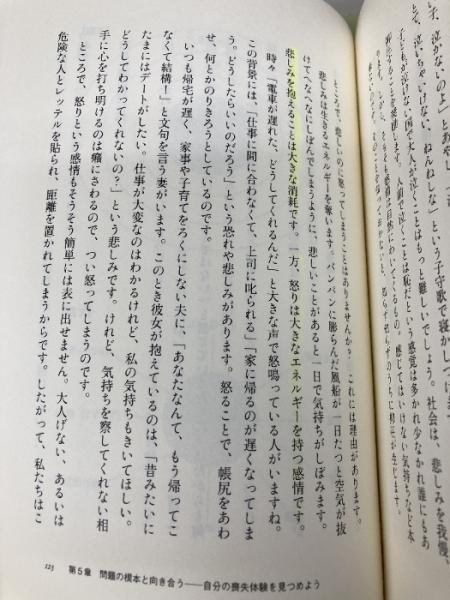 、泣かないのよ」とあや
泣いちゃいけない、ねんねしな」という子守歌で寝かしつけ
泣けない国で大人が泣くことはもっと難しいでしょう。社会は、悲しみを我慢
することを要請します。人前で泣くことは恥だという感覚は多かれ少なかれ誰にもあ
ところで、悲しいのに怒ってしまうことはありませんか？　これには理由があります。
悲しみは生きるエネルギーを奪います。パンパンに膨らんだ風船が一日たつと空気が抜
けてへなへなにしぼんでしまうように、悲しいことがあると一日で気持ちがしぼみます。
悲しみを抱えることは大きな消耗です。一方、怒りは大きなエネルギーを持つ感情です。
時々「電車が遅れた、どうしてくれるんだ」と大きな声で怒鳴っている人がいますね。
この背景には、「仕事に間に合わなくて、上司に叱られる」「家に帰るのが遅くなってしま
う。どうしたらいいのだろう」という恐れや悲しみがあります。怒ることで、帳尻をあわ
せ、何とかのりきろうとしているのです。
いつも帰宅が遅く、家事や子育てをろくにしない夫に、「あなたなんて、もう帰ってこ
なくて結構！」と文句を言う妻がいます。このとき彼女が抱えているのは、「昔みたいに
たまにはデートがしたい。仕事が大変なのはわかるけれど、私の気持ちもきいてほしい。
どうしてわかってくれないの？」という悲しみです。けれど、気持ちを察してくれない相
手に心を打ち明けるのは癪にさわるので、つい怒ってしまうのです。
ところで、怒りという感情もそうそう簡単には表に出せません。大人げない、あるいは
危険な人とレッテルを貼られ、距離を置かれてしまうからです。したがって、私たちはこ
123　第5章　問題の根本と向き合う――自分の喪失体験を見つめよう